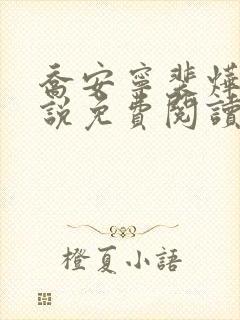 喬安寧裴燁
說免費閱讀
橙夏小語